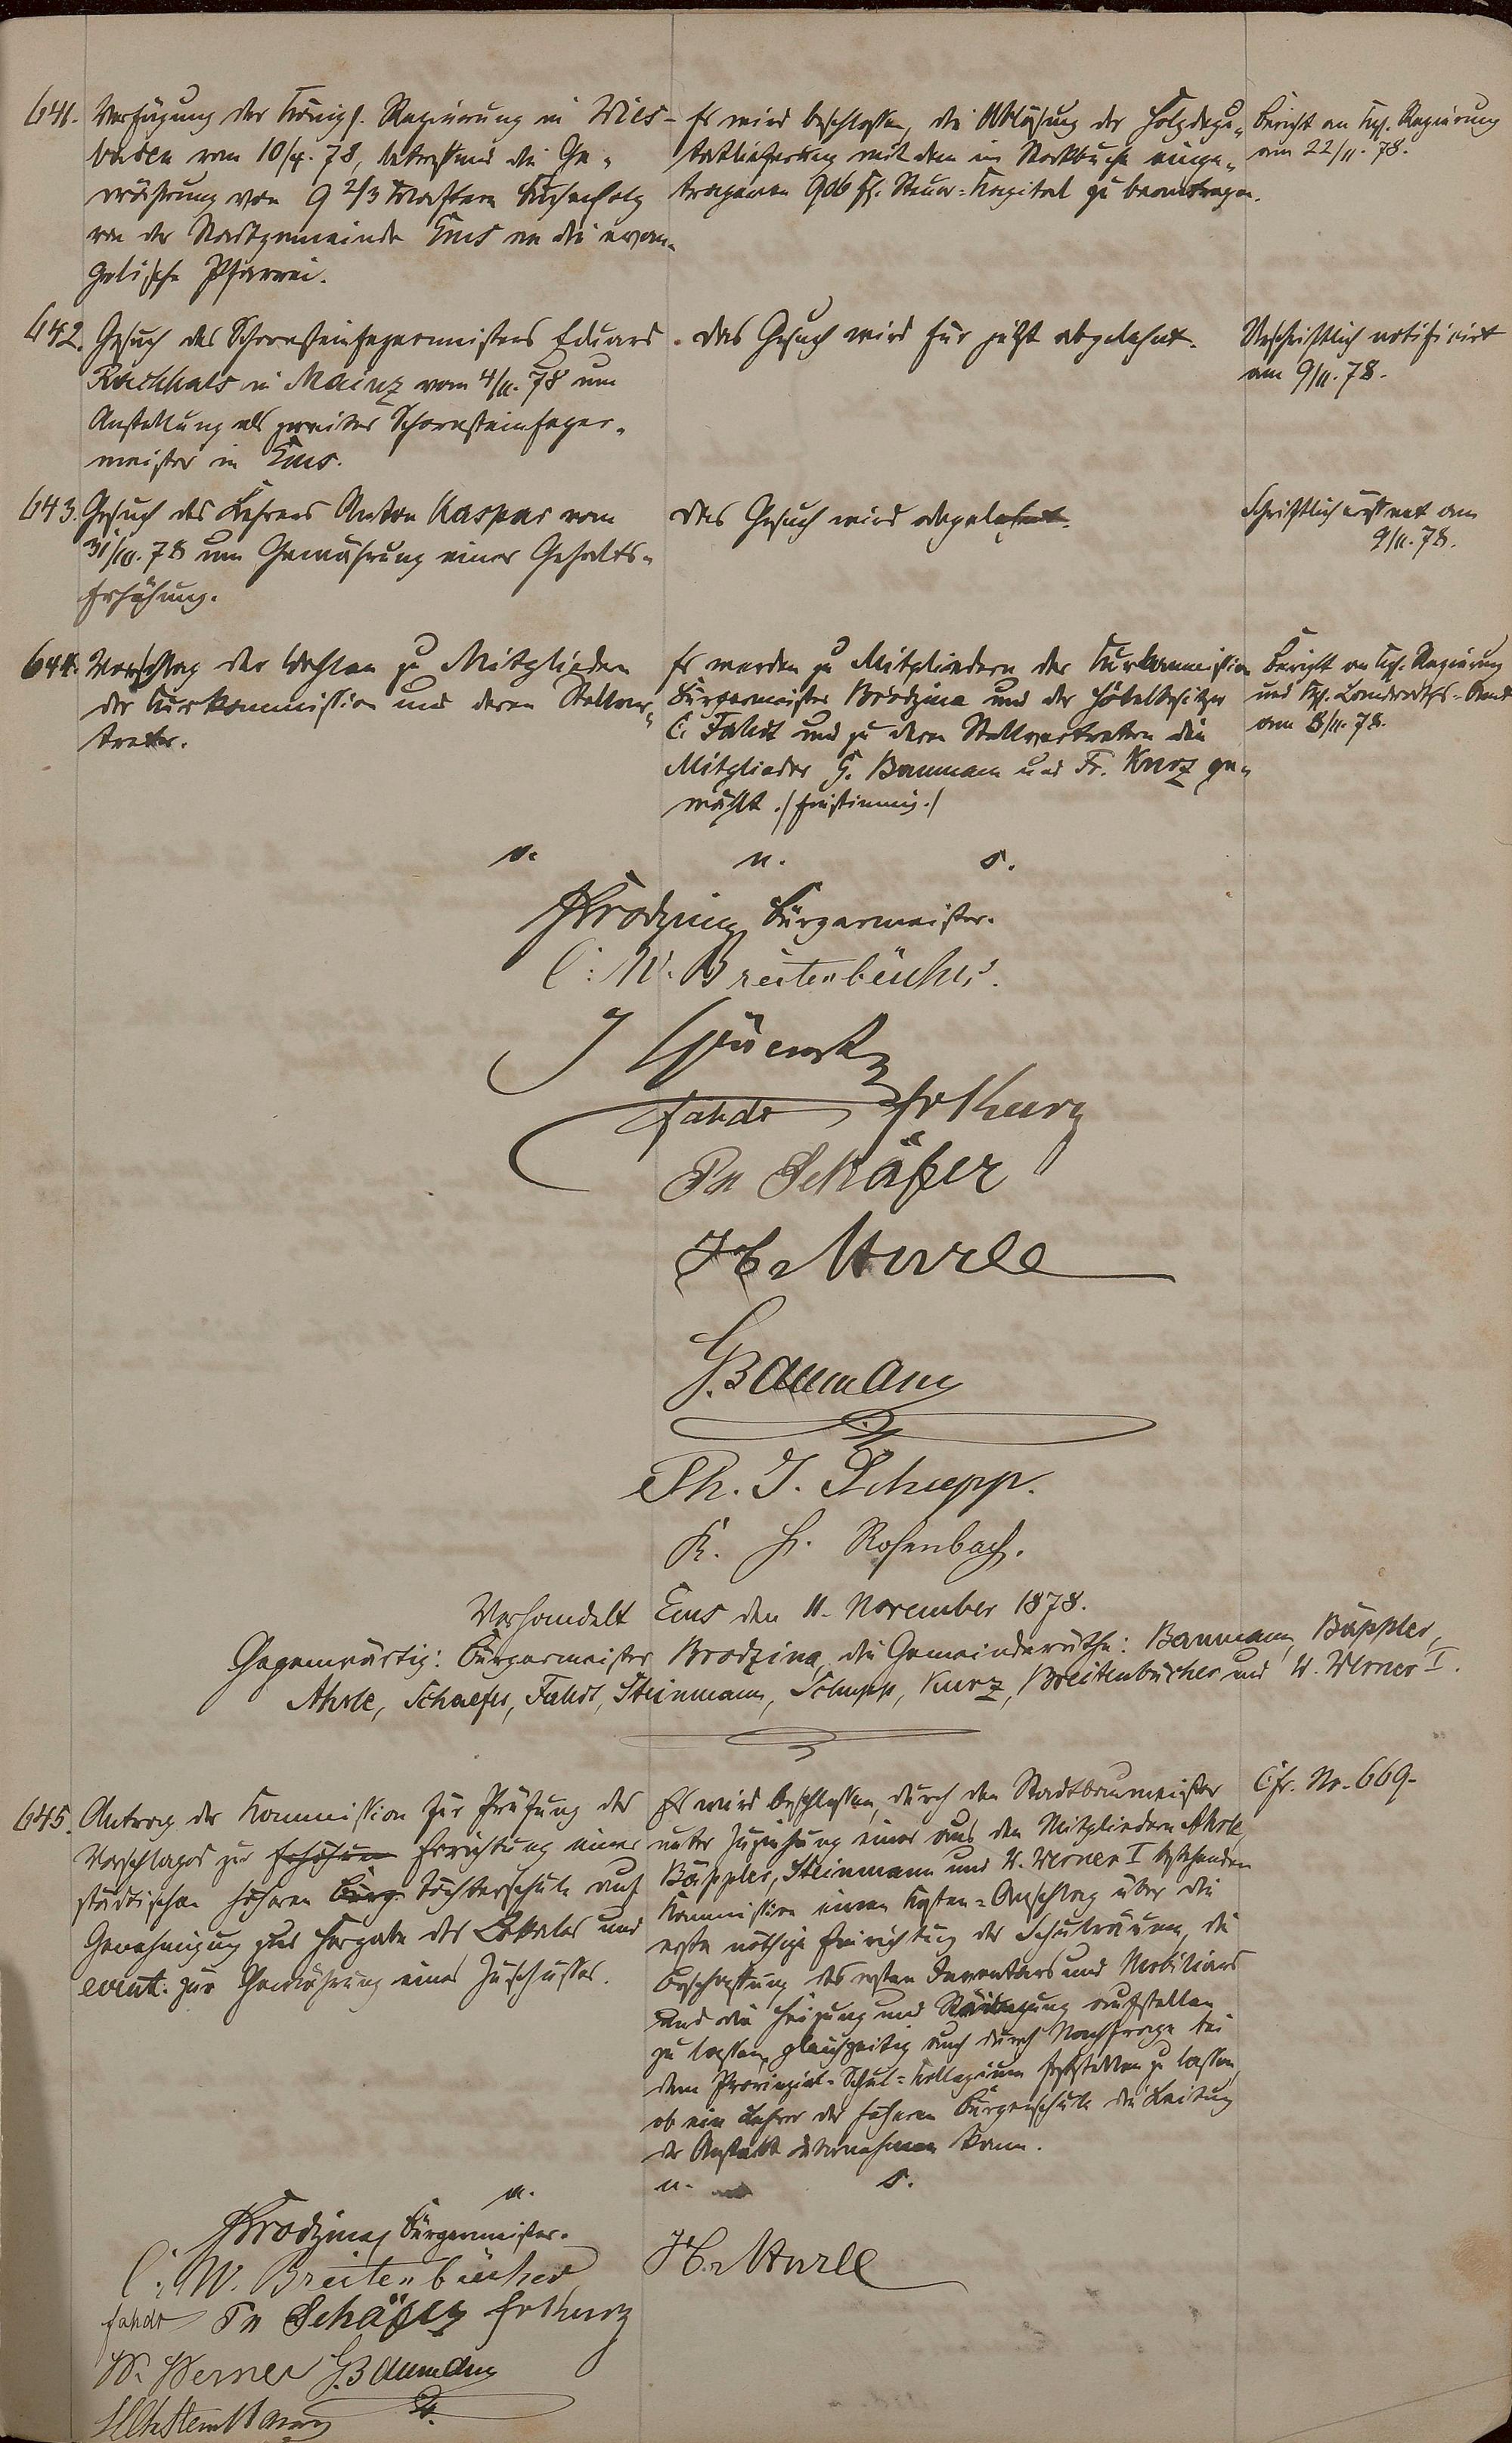 641. Verfügung der Königl. Regierung in Wies-
baden vom 10/9. 78, betreffend die Ge-
währung von 9 2/3 Klaftern Buchenholz
von der Stadtgemeinde Ems an die evan-
gelische Pfarrei.
Es wird beschlossen, die Ablösung der Holzdepu-
tatlieferung mit dem im Stockbuche einge-
tragenen 926 fl. Steuer-Kapital zu beantragen.
Bericht an Kgl. Regierung
am 22/11. 78.
642. Gesuch des Schornsteinfegermeisters Eduard
in Mainz vom 4/11. 78 um
Anstellung als zweiter Schornsteinfeger-
meister in Ems.
Das Gesuch wird für jetzt abgelehnt.
Urschriftlich notificirt
am 9/11. 78.
643. Gesuch des Lehrers Anton Kaspar vom
31/10. 78 um Gewährung einer Gehalts-
Erhöhung.
Das Gesuch wird abgelehnt.
Schriftlich eröffnet am
9/11. 78.
644. Vorschlag der Wahlen zu Mitgliedern
der Kurkommission und deren Stellver-
treter.
Es werden zu Mitgliedern der Kurkommission
Bürgermeister Brodzina und der Hôtelbesitzer
C. Fahdt und zu deren Stellvertretern die
Mitglieder G. Baumann und Fr. Kurz ge-
wählt. /Einstimmig./
Bericht an Kgl. Regierung
und Kgl. Landraths-Amt
am 8/11. 78.
v. u. s.
Brodzina, Bürgermeister.
C. W. Breitenbücher.
Fahdt Fr Kurz
Ph Schäfer
H. Ahrle
G. Baumann
Ph. J. Schupp.
K. H. Rosenbach.
Verhandelt Ems den 11. November 1878.
Gegenwärtig: Bürgermeister Brodzina, die Gemeinderäthe: Baumann, Bäppler,
Ahrle, Schaefer, Fahdt, Steinmann, Schupp, Kurz, Breitenbücher und W. Werner I.
645. Antrag der Kommission zur Prüfung des
Vorschlages zur Erhöhun Errichtung einer
städtischen höheren Bürg Töchterschule auf
Genehmigung zur Hergabe des Lokales und
event. zur Gewährung eines Zuschusses.
Es wird beschlossen, durch den Stadtbaumeister
unter Zuziehung einer aus den Mitgliedern Ahrle,
Bäppler, Steinmann und W. Werner I bestehenden
Kommission einen Kosten-Anschlag über die
erste nöthige Einrichtung der Schulräume, die
Beschaffung des ersten Inventars und Mobiliars
und die Heizung und Reinigung aufstellen
zu lassen, gleichzeitig auch durch Nachfrage bei
dem Provinzial-Schul-Kollegium feststellen zu lassen,
ob ein Lehrer der höheren Bürgerschule die Leitung
der Anstalt übernehmen kann.
Cfr. No. 669.
v. u. s.
Brodzina, Bürgermeister.
C. W. Breitenbücher
H. Ahrle
Fahdt Ph Schäfer Fr Kurz
W. Werner G. Baumann
Steinmann